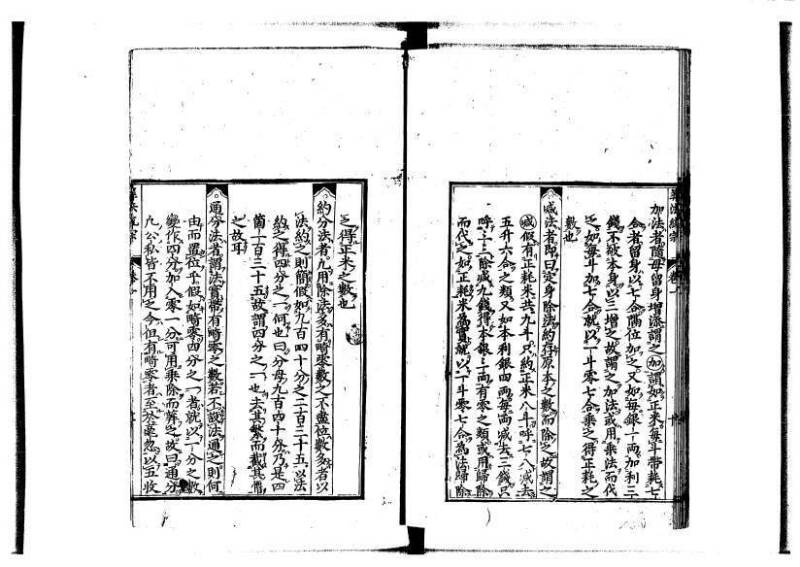 算法統宗 卷一
加法者隨母留身增添謂之加謂如正米每斗帶耗七
合者留身以七合隔位加之又如每銀一兩加利三
錢不破本身以三增之故謂之加法或用乘法而代
之如每斗加七合就以一斗零七合乘之得正耗之
數也
減法者常曰定身除法約存原本之數而除之故謂之
減假有正耗米共九斗只約正米八斗呼七八減去
五升六合之類又如本利銀四兩每兩減去三錢只
呼三三除減九錢得本銀三兩有零之類或用歸除
而代之如正耗米為實就以一斗零七合為法歸除
之得正米之數也
約分法者凡用除法多有畸零數之不盡位數多者以
法約之則簡假如九百四十分之二百三十五以法
約之得四分之一何也曰分母九百四十分乃是四
箇二百三十五故謂四分之一也去其繁而就其簡
之故耳
通分法者謂法實帶有畸零之數若不設法通之則何
由而置位乎假如畸零四分之一者就以一分之數
變作四分加入零一分可用乘除而算之故曰通分
凡公私皆不用之今但有畸零者至於毫忽以五收
算法統宗 卷一